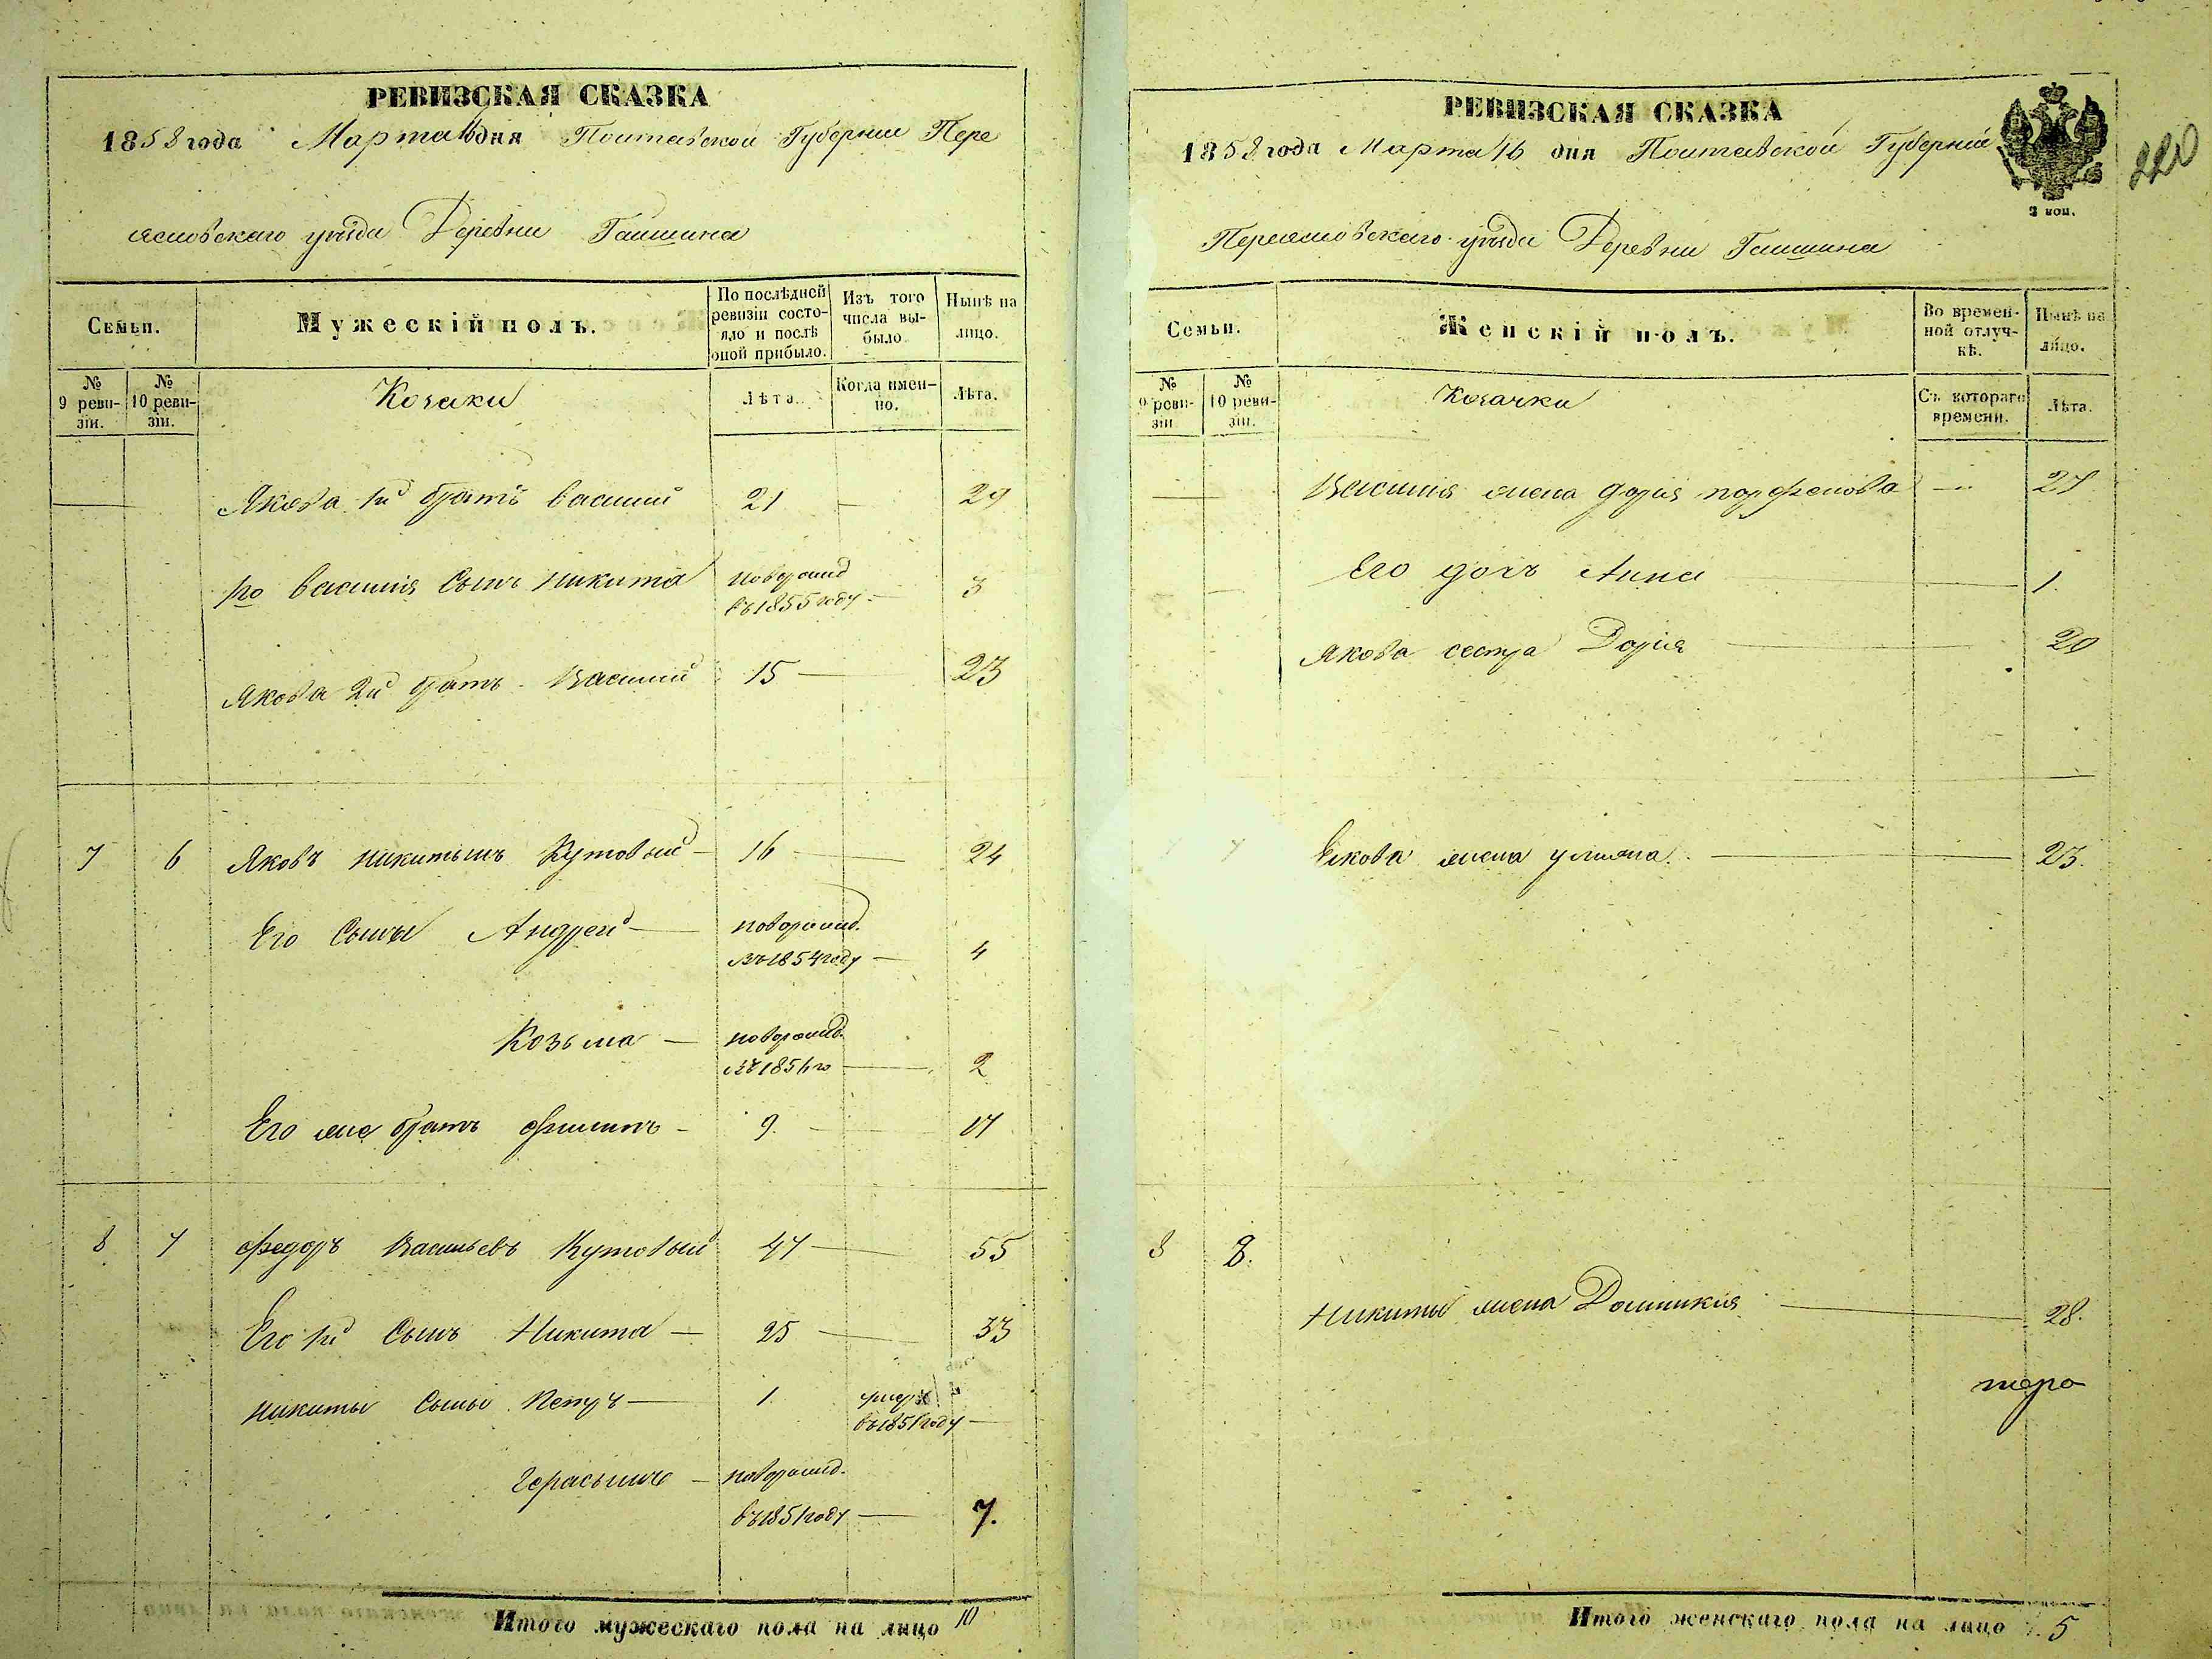 РЕВИЗСКАЯ СКАЗКА
1858 года Марта 16 дня Полтавской Губернии Пере
яславскаго уѣзда Деревни Гаишина
Семьи.
Мужескій полъ.
По послѣдней ревизіи состояло и послѣ оной прибыло.
Изъ того числа выбыло.
Нынѣ на лицо.
№ 9 ревизіи.
№ 10 ревизіи.
Козаки
Лѣта.
Когда именно.
Лѣта.
Якова 1й братъ Василий 21 — 29
1го Василія Сынъ Никита новорожд въ 1855 году — 3
Якова 2й братъ Василий 15 — 23
7 6 Яковъ Никитинъ Кутовый — 16 — 24
Его Сыны Андрей — новорожд. въ 1854 году — 4
Козьма — новорожд. въ 1856 го — 2
Его же братъ Филипъ — 9. — 17
8 7 Федоръ Васильевъ Кутовый 47 — 55
Его 1й Сынъ Никита — 25 — 33
Никиты Сыны Петръ — 1. въ 1851 году —
Герасимъ — новорожд. въ 1851 году — 7.
Итого мужескаго пола на лицо 10
РЕВИЗСКАЯ СКАЗКА
1858 года Марта 16 дня Полтавской Губерніи
220
3 коп.
Переяславскаго уѣзда Деревни Гаишина
Семьи.
Женскій полъ.
Во временной отлучкѣ.
Нынѣ на лицо.
№ 9 ревизіи
№ 10 ревизіи.
Козачки
Съ котораго времени.
Лѣта.
Василія жена Дарія Парфенова — 27
Его дочь Анна — 1.
Якова сестра Дарія — 20
7 7 Якова жена Улияна. — 23.
8 8.
Никиты жена Домникия — 28.
Итого женскаго пола на лицо 5